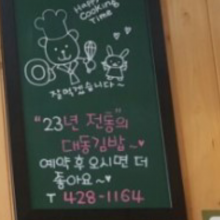 Happy
Cooking
Time
잘먹겠습니다~
"23년 전통"의
대동김밥~♥
예약 후 오시면 더
좋아요~♥
T 428-1164